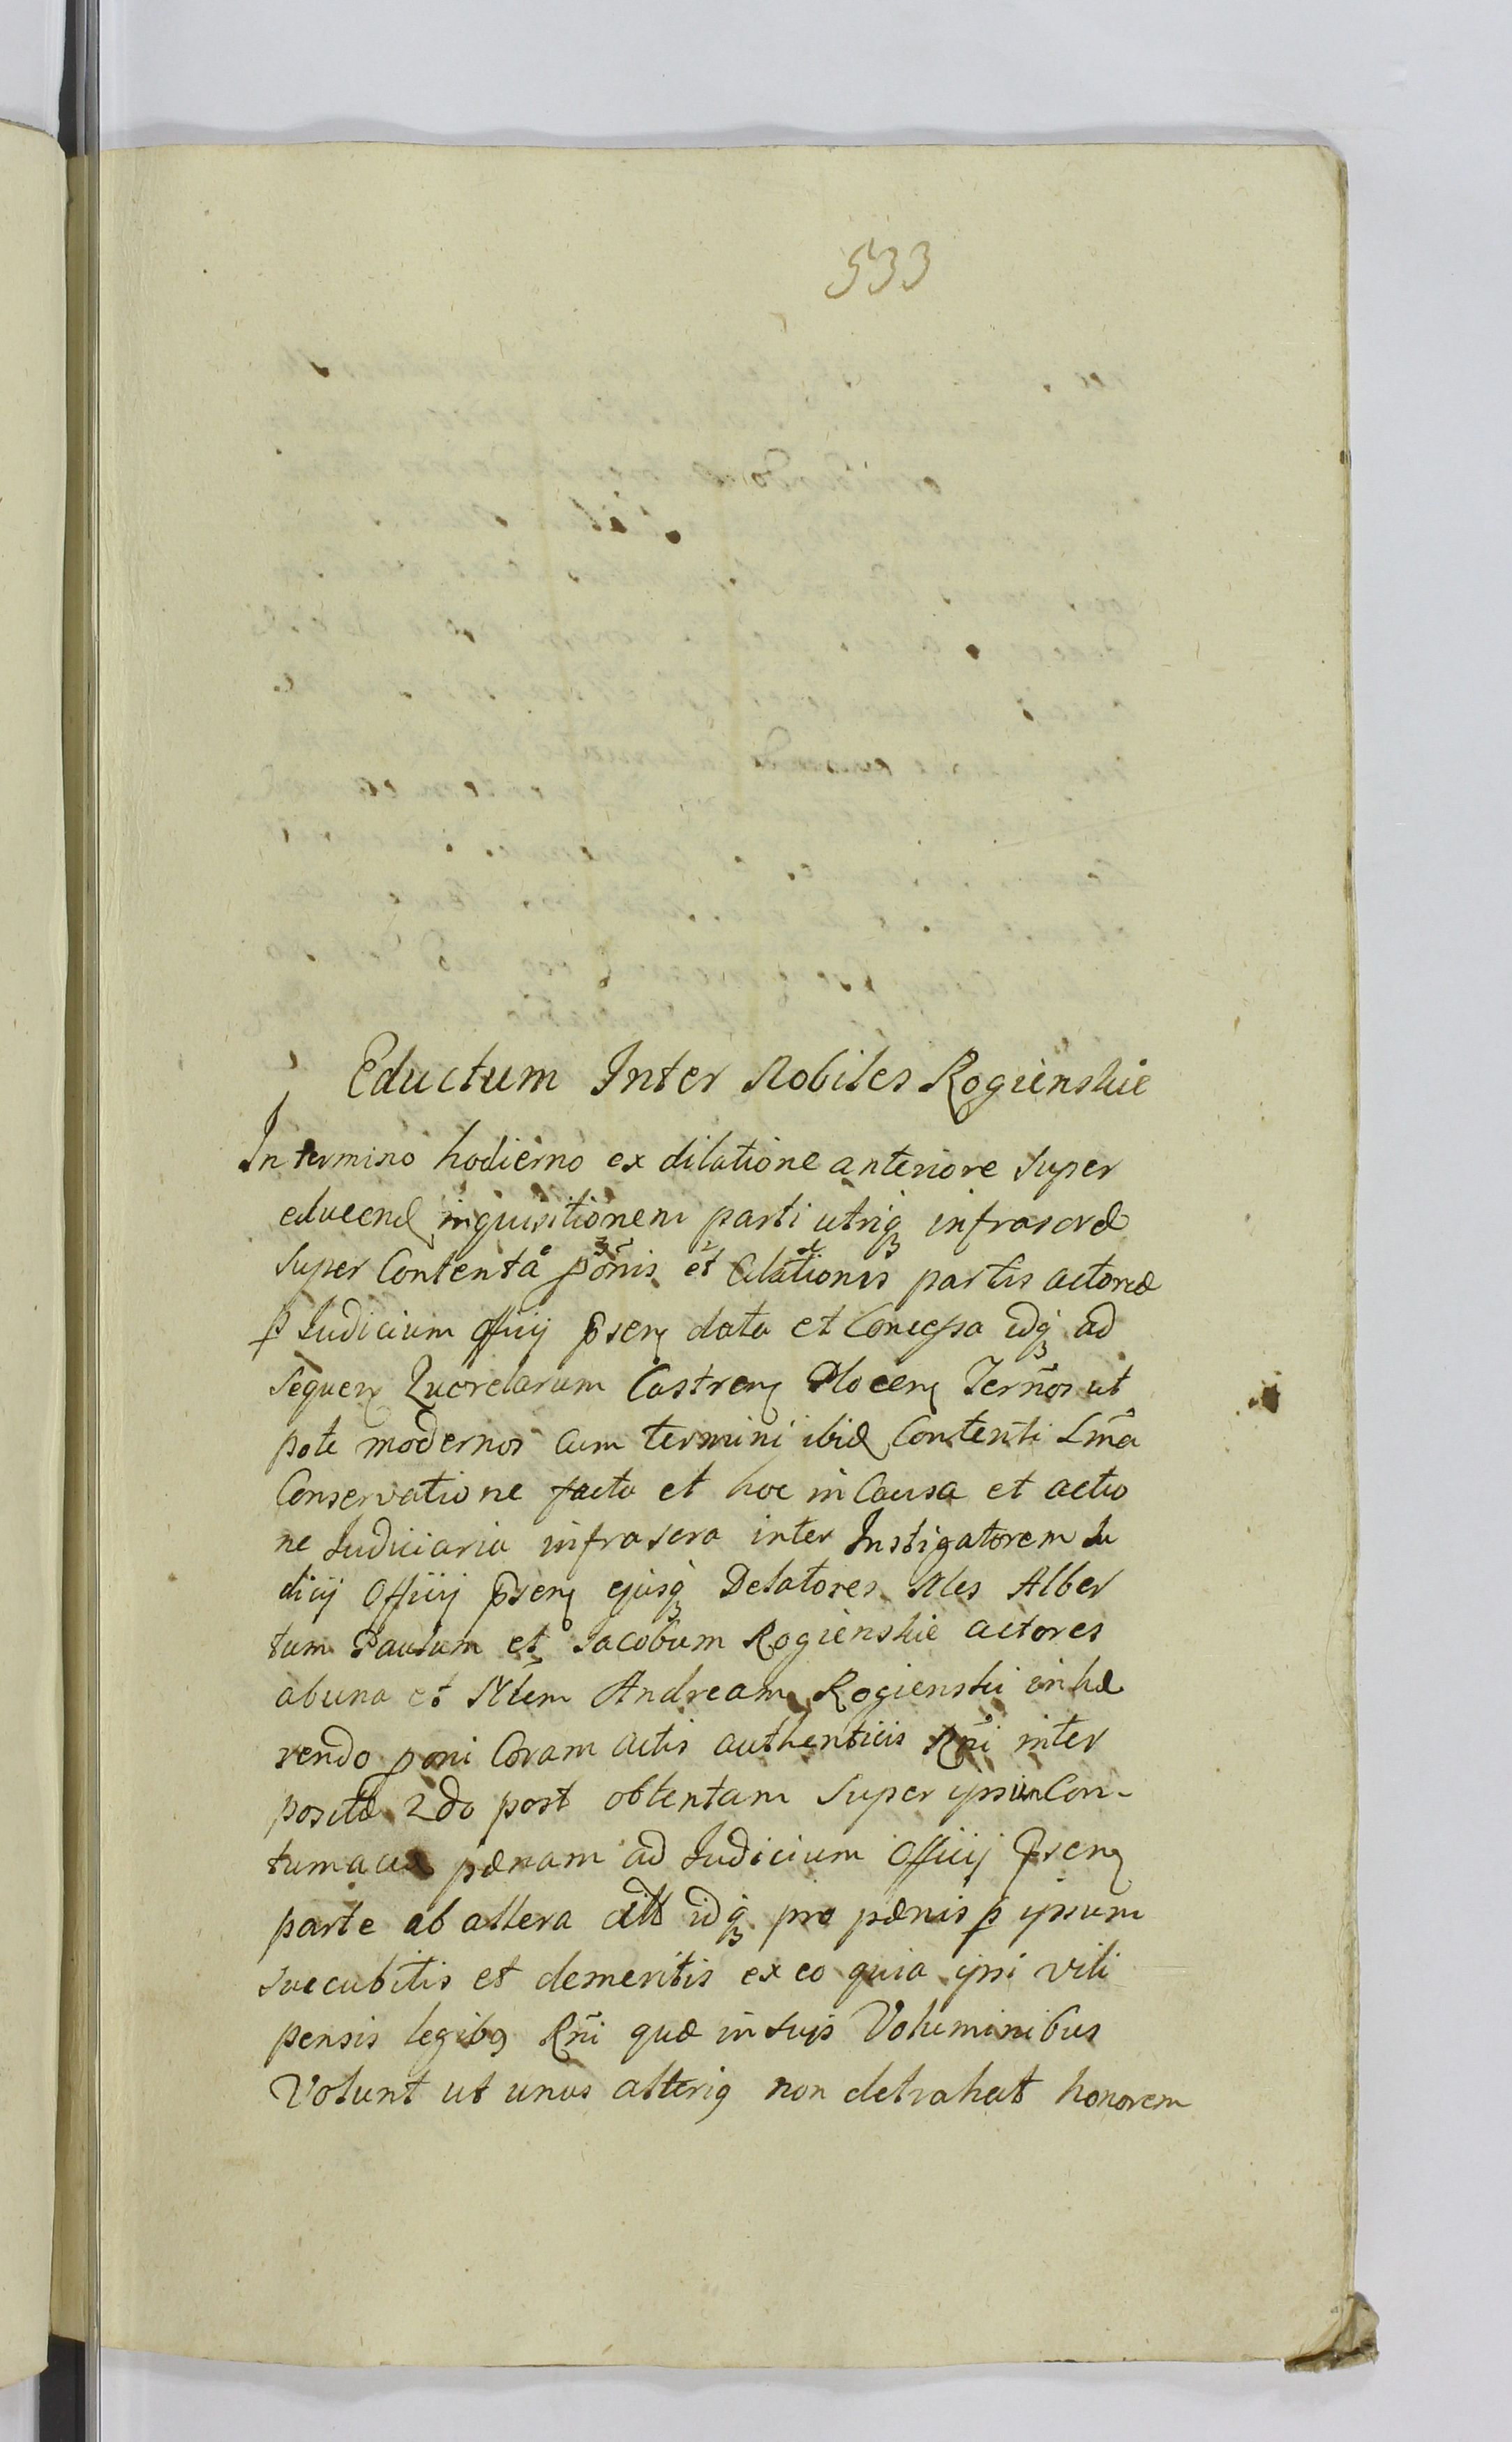 533
Eductum Inter Nobiles Rogienskie
In termino hodierno ex dilatione anteriore super
educend inquisitionem parti utriq infrascræ
super Contentã põnis et Citationis partis actoreæ
p Judicium Officij p̃sen data et Concessa idq ad
sequen Querelarum Castren Plocen Term̃os ut
pote modernos cum termini ibid Contenti Lm̃a
Conservatione facta et hoc in Causa et actio
ne Judiciaria infrascra inter Instigatorem Ju
dicij Officij p̃sen ejusq Delatores Nles Alber
tum Paulum et Jacobum Rogienskie actores
abuna et Nlem Andream Rogienski inhæ
rendo poni Coram actis authenticis Rñi inter
positæ 2do post obtentam super ipsum Con-
tumaciæ pænam ad Judicium Officij p̃sen
parte ab altera citt idq pro pænis p ipsum
succubitis et demeritis ex eo quia ipsi vili
pensis legib9 Rñi quæ in suis Voluminibus
Volunt ut unus alteri9 non detrahat honorem